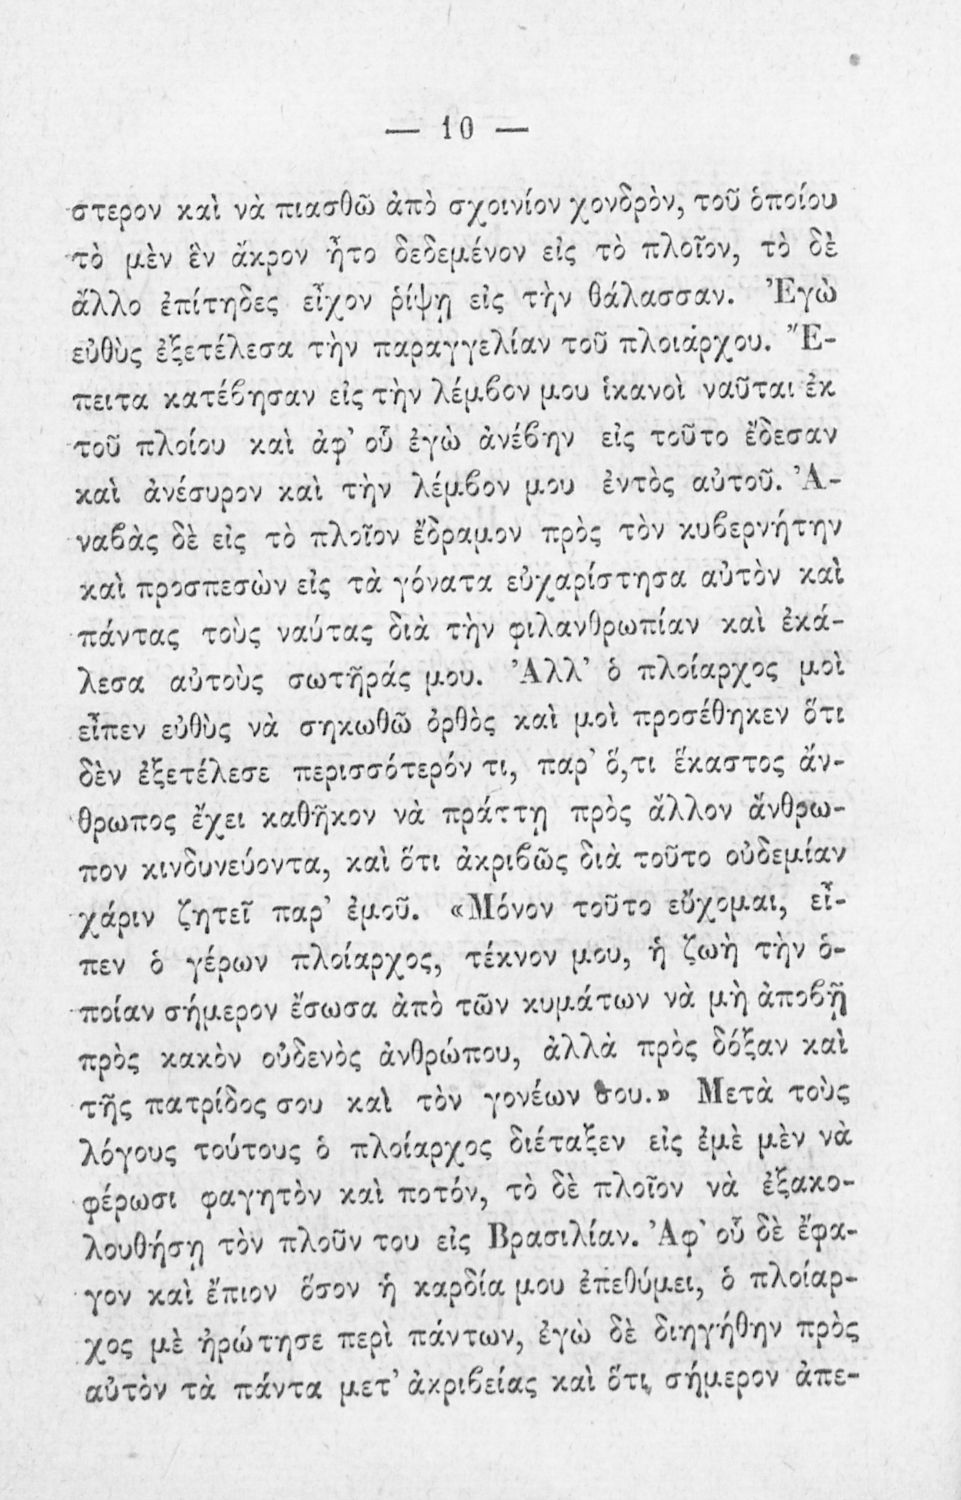 — 10 —
στερον καὶ νὰ πιασθῶ ἀπὸ σχοινίον χονδρὸν, τοῦ ὁποίου
τὸ μὲν ἓν ἄκρον ἦτο δεδεμένον εἰς τὸ πλοῖον, τὸ δὲ
ἄλλο ἐπίτηδες εἶχον ῥίψῃ εἰς τὴν θάλασσαν. Ἐγὼ
εὐθὺς ἐξετέλεσα τὴν παραγγελίαν τοῦ πλοιάρχου. Ἔ-
πειτα κατέϐησαν εἰς τὴν λέμϐον μου ἱκανοὶ ναῦται ἐκ
τοῦ πλοίου καὶ ἀφ' οὗ ἐγὼ ἀνέϐην εἰς τοῦτο ἔδεσαν
καὶ ἀνέσυρον καὶ τὴν λέμϐον μου ἐντὸς αὐτοῦ. Ἀ-
ναϐὰς δὲ εἰς τὸ πλοῖον ἔδραμον πρὸς τὸν κυϐερνήτην
καὶ προσπεσὼν εἰς τὰ γόνατα εὐχαρίστησα αὐτὸν καὶ
πάντας τοὺς ναύτας διὰ τὴν φιλανθρωπίαν καὶ ἐκά-
λεσα αὐτοὺς σωτῆράς μου. Ἀλλ' ὁ πλοίαρχος μοὶ
εἶπεν εὐθὺς νὰ σηκωθῶ ὀρθὸς καὶ μοὶ προσέθηκεν ὅτι
δὲν ἐξετέλεσε περισσότερόν τι, παρ' ὅ,τι ἕκαστος ἄν-
θρωπος ἔχει καθῆκον νὰ πράττῃ πρὸς ἄλλον ἄνθρω-
πον κινδυνεύοντα, καὶ ὅτι ἀκριϐῶς διὰ τοῦτο οὐδεμίαν
χάριν ζητεῖ παρ' ἐμοῦ. «Μόνον τοῦτο εὔχομαι, εἶ-
πεν ὁ γέρων πλοίαρχος, τέκνον μου, ἡ ζωὴ τὴν ὁ-
ποίαν σήμερον ἔσωσα ἀπὸ τῶν κυμάτων νὰ μὴ ἀποϐῇ
πρὸς κακὸν οὐδενὸς ἀνθρώπου, ἀλλὰ πρὸς δόξαν καὶ
τῆς πατρίδος σου καὶ τὸν γονέων σου.» Μετὰ τοὺς
λόγους τούτους ὁ πλοίαρχος διέταξεν εἰς ἐμὲ μὲν νὰ
φέρωσι φαγητὸν καὶ ποτόν, τὸ δὲ πλοῖον νὰ ἐξακο-
λουθήσῃ τὸν πλοῦν του εἰς Βρασιλίαν. Ἀφ' οὗ δὲ ἔφα-
γον καὶ ἔπιον ὅσον ἡ καρδία μου ἐπεθύμει, ὁ πλοίαρ-
χος μὲ ἠρώτησε περὶ πάντων, ἐγὼ δὲ διηγήθην πρὸς
αὐτὸν τὰ πάντα μετ' ἀκριϐείας καὶ ὅτι σήμερον ἀπε-